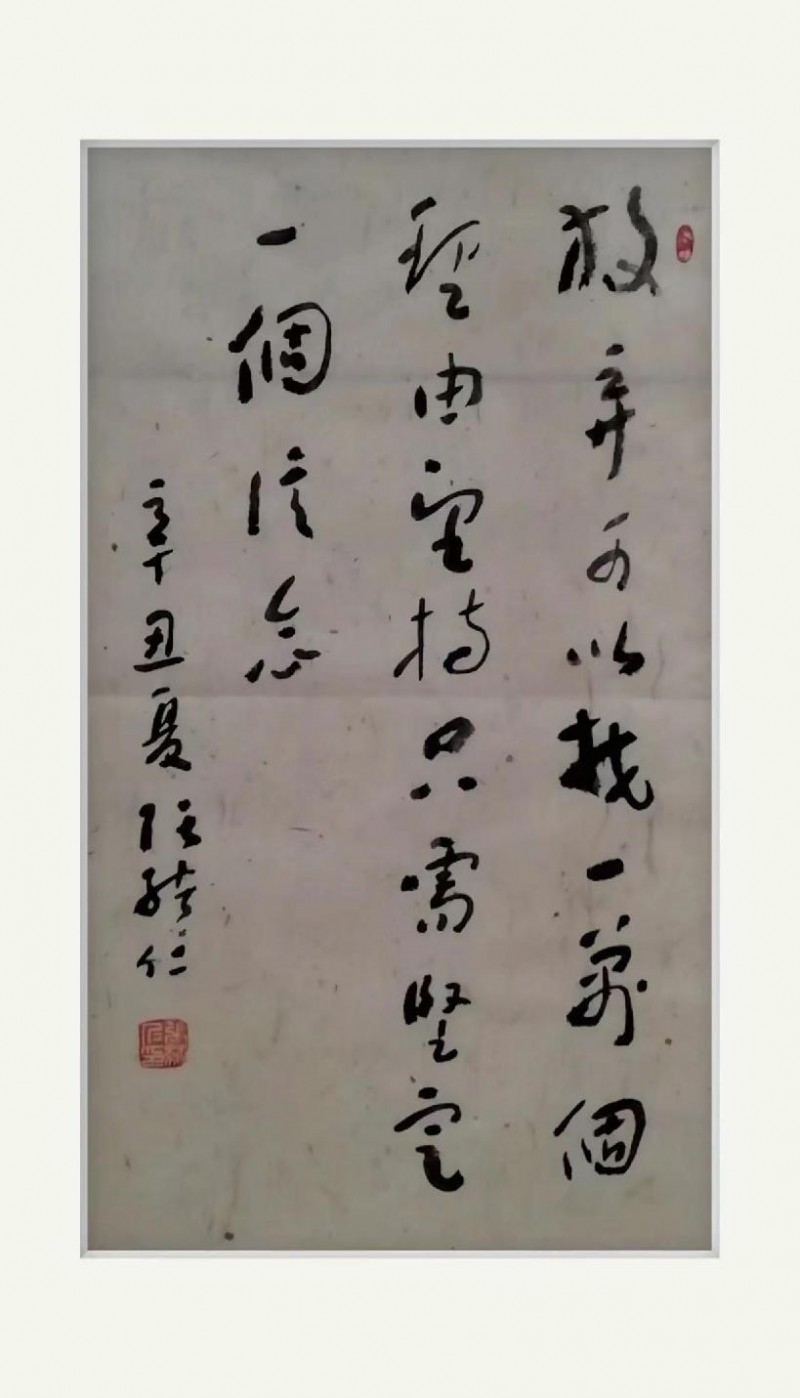 放弃可以找一萬個
理由堅持只需堅定
一個信念
辛丑夏張仁